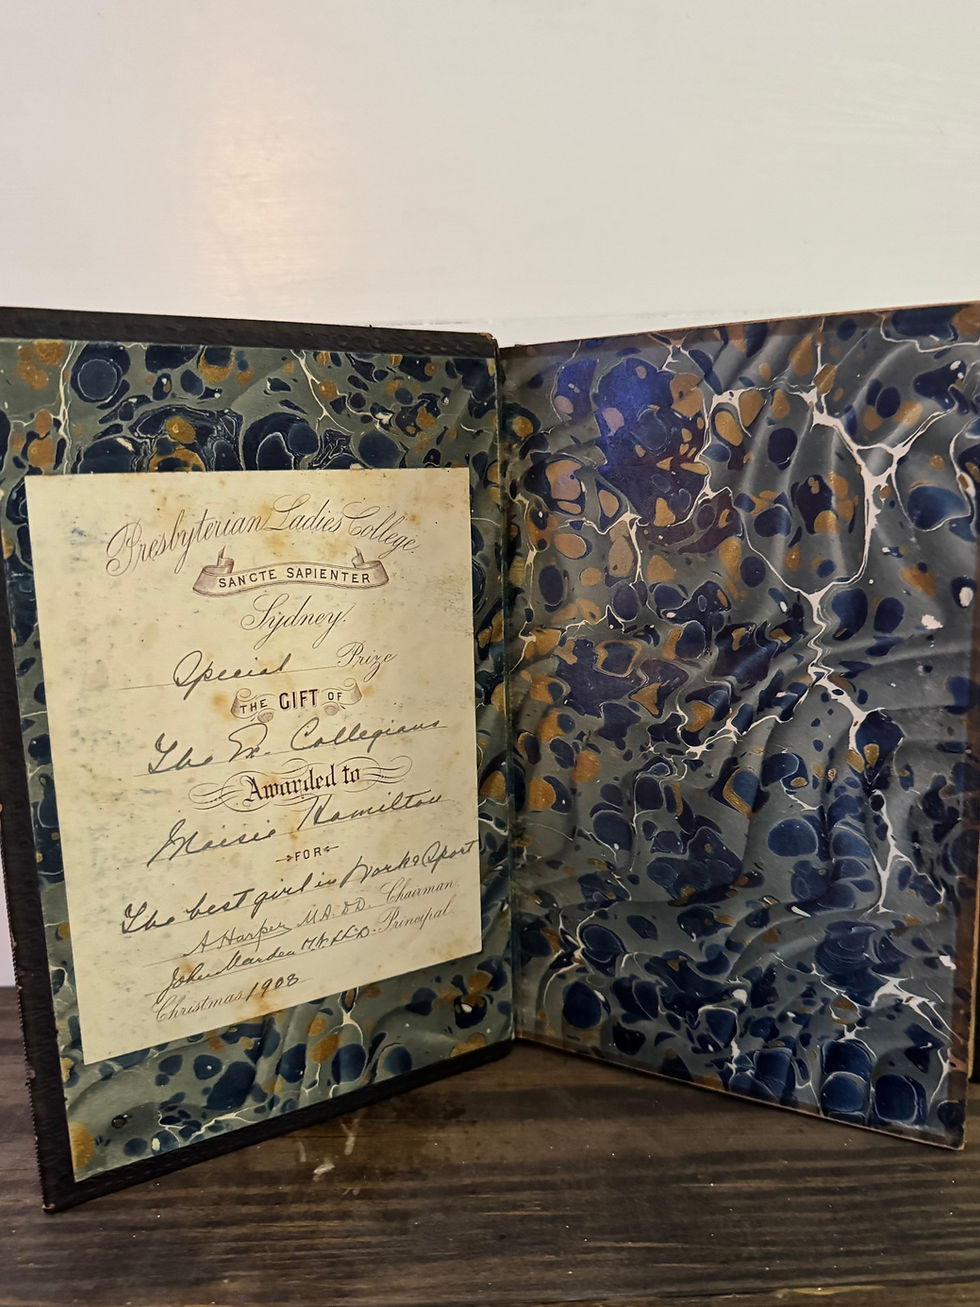 Presbyterian Ladies College
SANCTE SAPIENTER
Sydney.
Special Prize
THE GIFT OF
The Ex. Collegians
Awarded to
Maisie Hamilton
FOR
The best girl in Work & Sport
A Harper M.A. D.D. Chairman.
John Marden M.A. LL.D. Principal.
Christmas 1908